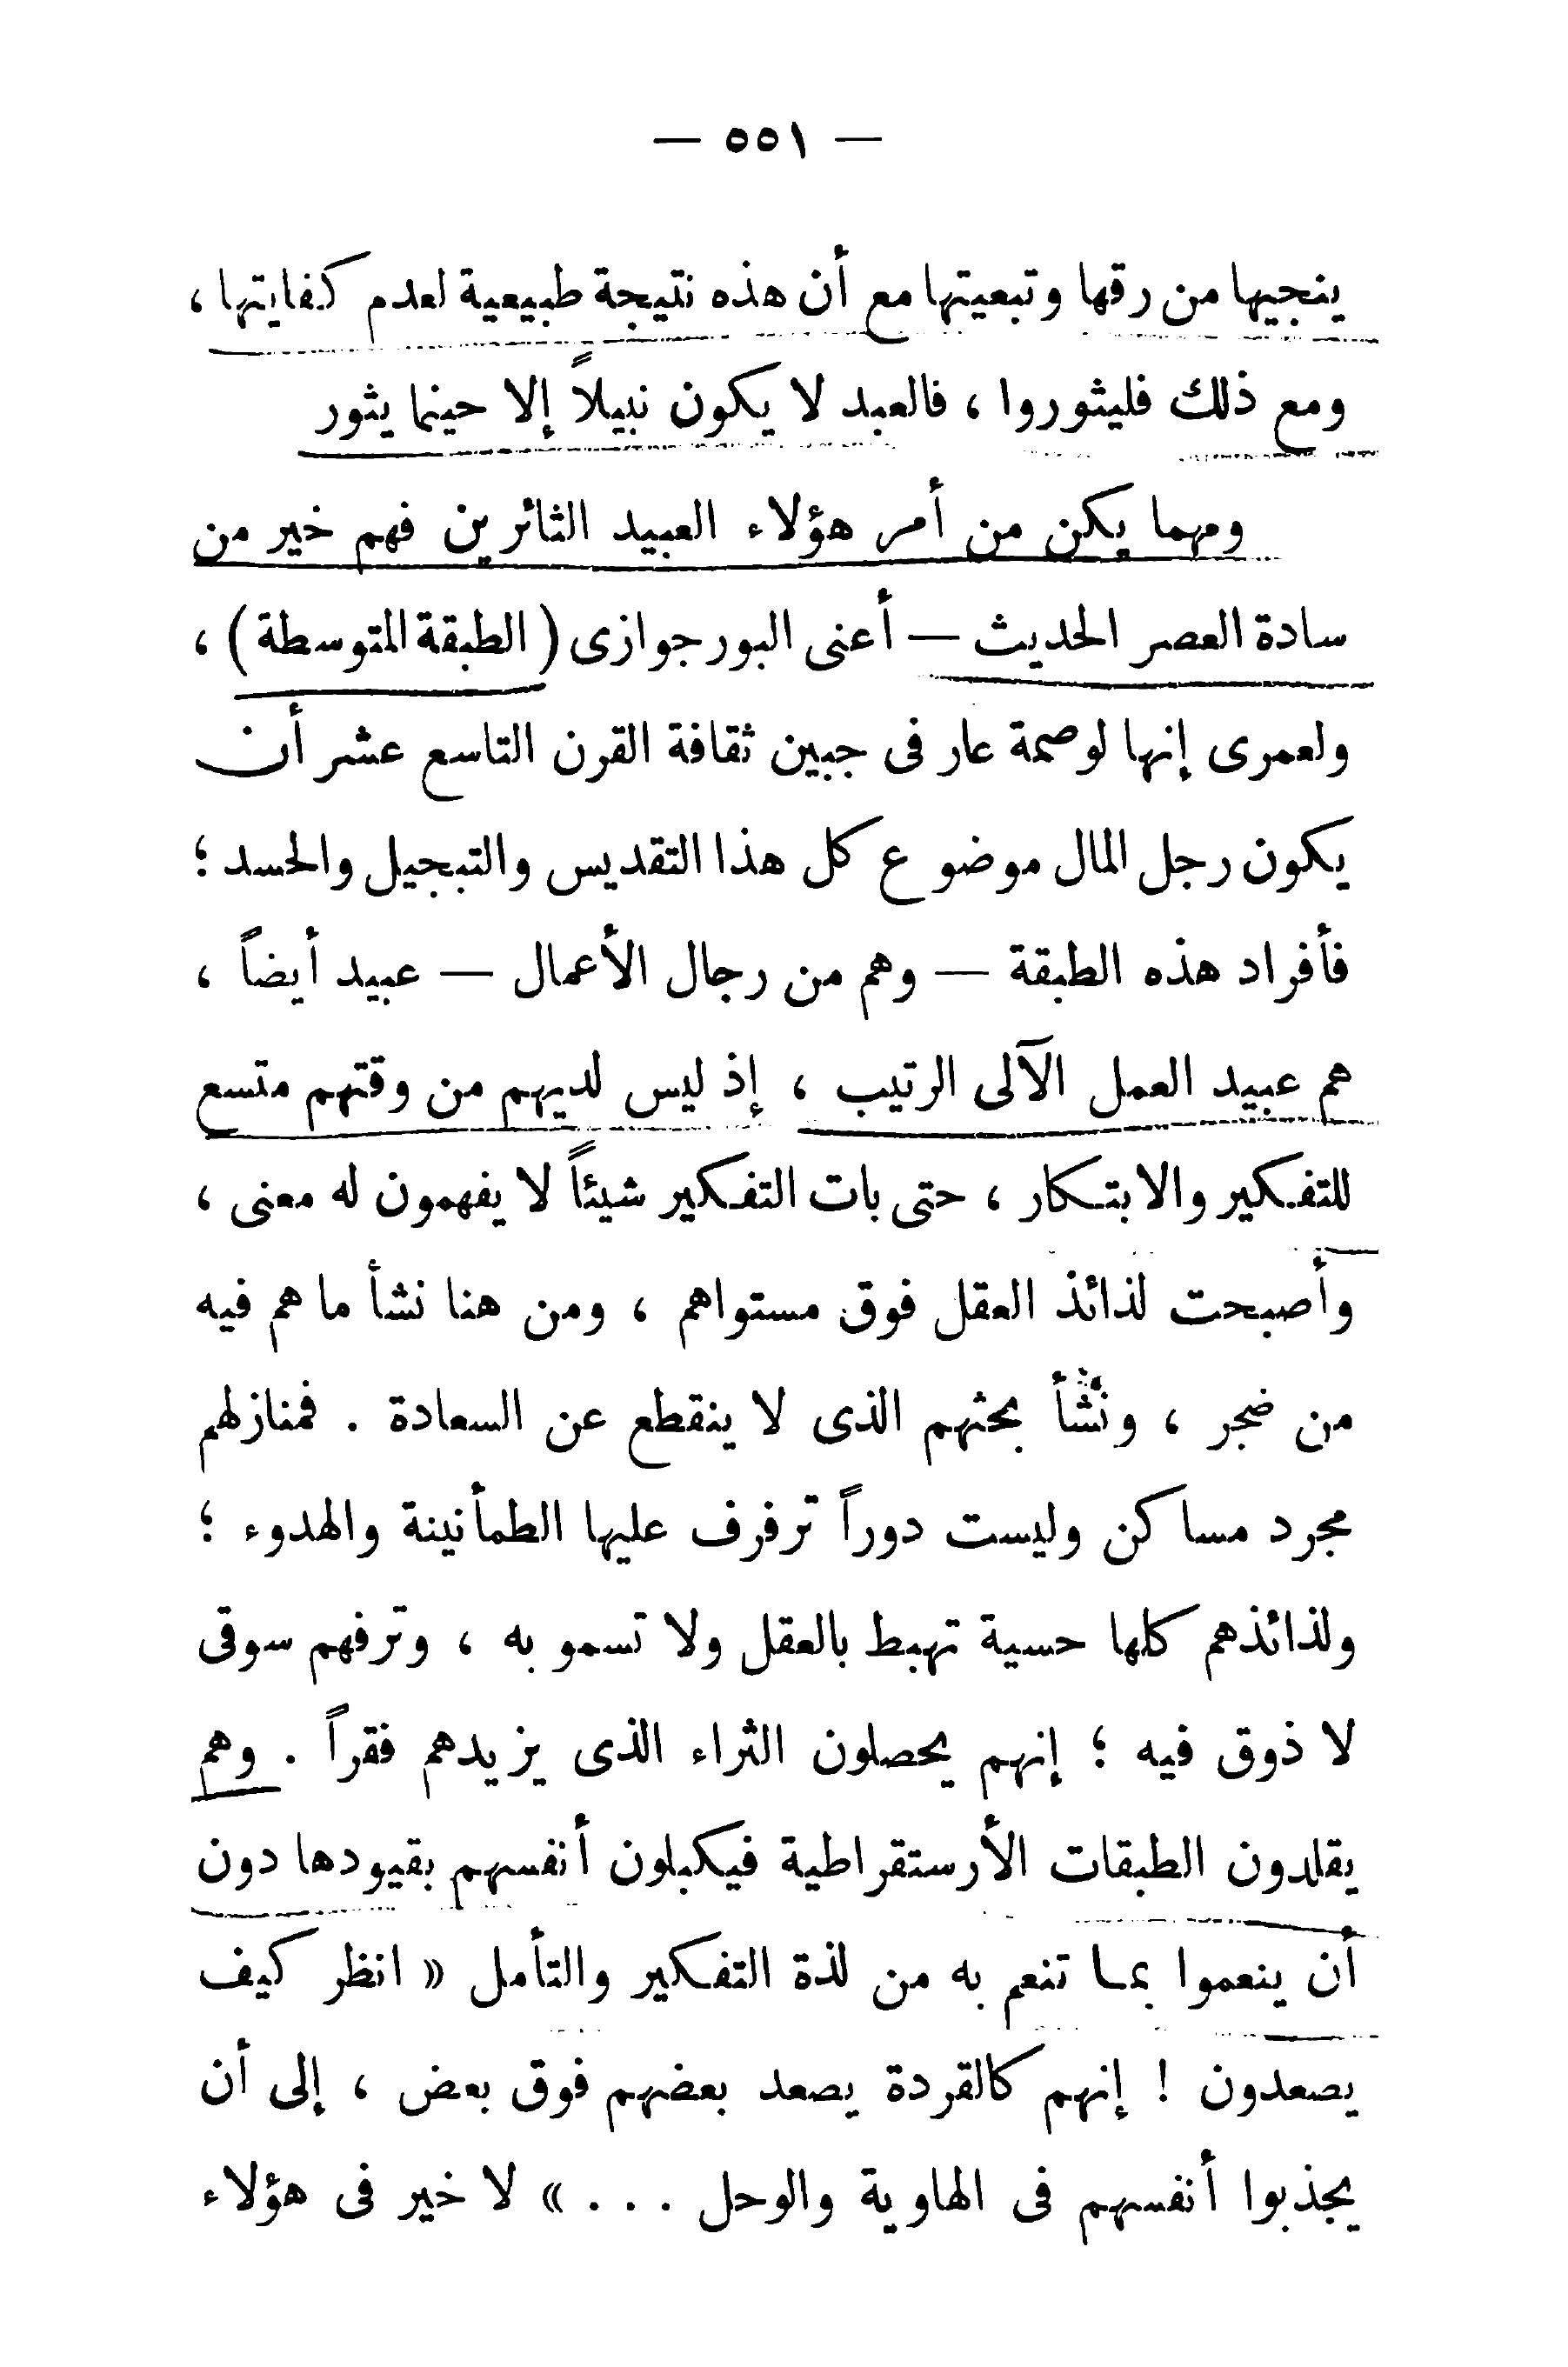 — ٥٥١ —
ينجيها من رقها وتبعيتها مع أن هذه نتيجة طبيعية لعدم كفايتها ،
ومع ذلك فليثوروا ، فالعبد لا يكون نبيلاً إلا حينما يثور
ومهما يكن من أمر هؤلاء العبيد الثائرين فهم خير من
سادة العصر الحديث — أعنى البورجوازى ( الطبقة المتوسطة ) ،
ولعمرى إنها لوصمة عار فى جبين ثقافة القرن التاسع عشر أن
يكون رجل المال موضوع كل هذا التقديس والتبجيل والحسد ؛
فأفراد هذه الطبقة — وهم من رجال الأعمال — عبيد أيضاً ،
هم عبيد العمل الآلى الرتيب ، إذ ليس لديهم من وقتهم متسع
للتفكير والابتكار ، حتى بات التفكير شيئاً لا يفهمون له معنى ،
وأصبحت لذائذ العقل فوق مستواهم ، ومن هنا نشأ ما هم فيه
من ضجر ، ونشأ بحثهم الذى لا ينقطع عن السعادة . فمنازلهم
مجرد مساكن وليست دوراً ترفرف عليها الطمأنينة والهدوء ؛
ولذائذهم كلها حسية تهبط بالعقل ولا تسمو به ، وترفهم سوقى
لا ذوق فيه ؛ إنهم يحصلون الثراء الذى يزيدهم فقراً . وهم
يقلدون الطبقات الأرستقراطية فيكبلون أنفسهم بقيودها دون
أن ينعموا بما تنعم به من لذة التفكير والتأمل « انظر كيف
يصعدون ! إنهم كالقردة يصعد بعضهم فوق بعض ، إلى أن
يجذبوا أنفسهم فى الهاوية والوحل . . . » لا خير فى هؤلاء